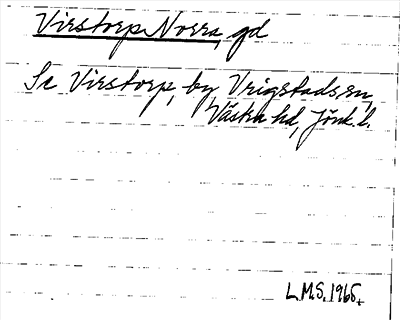 Virstorp Norra, gd
Se Virstorp, by, Vrigstads sn,
Västra hd, Jönk. l.
L.M.S. 1965.